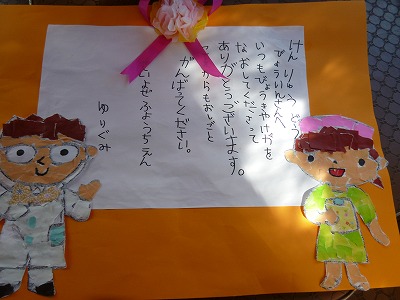 けんりゅうどう
びょういんさんへ
いつもびょうきやけがを
なおしてくださって
ありがとうございます。
これからもおしごと
がんばってください。
ようちえん
ゆりぐみ